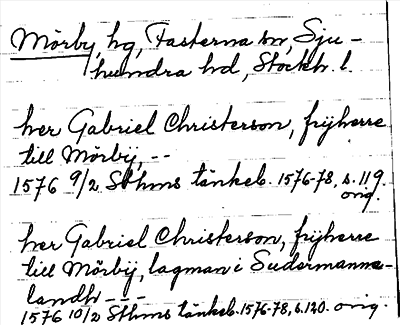 Mörby, hg, Fasterna sn, Sju-
hundra hd, Stockh. l.
her Gabriel Christerson, frijherre
till Mörbij, --
1576 9/2 Sthms tänkeb. 1576-78, s. 119.
orig.
her Gabriel Christerson, frijherre
till Mörbij, lagman i Sudermanne-
landh - - -
1576 10/2 Sthms tänkeb. 1576-78, s. 120. orig.